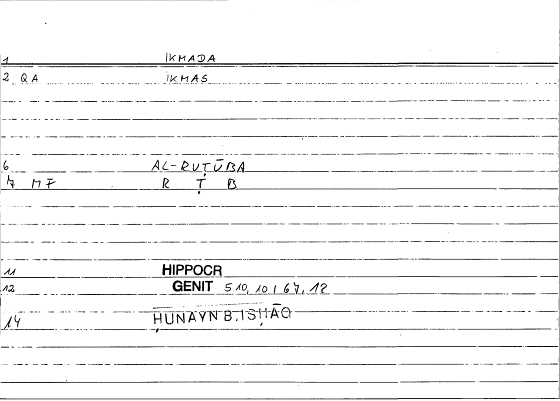 1 IKMADA
2 QA IKMAS
6 AL-RUṬŪBA
7 MF R Ṭ B
11 HIPPOCR
12 GENIT 510,10 / 67,12
14 ḤUNAYN B. ISḤĀQ